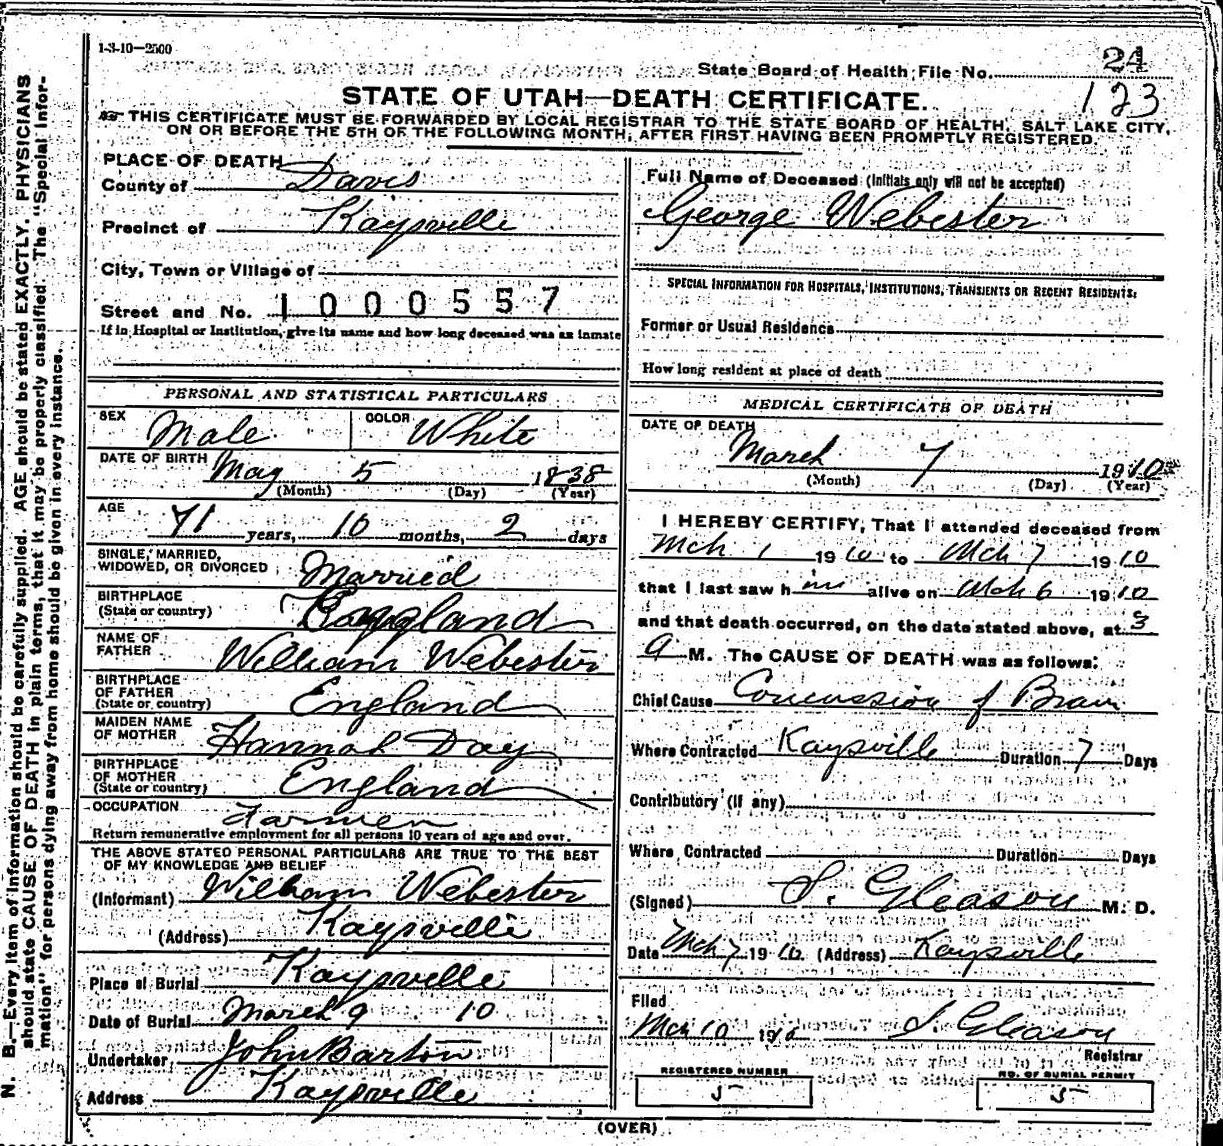 1-3-10—2500
State Board of Health File No. 24
123
STATE OF UTAH—DEATH CERTIFICATE.
THIS CERTIFICATE MUST BE FORWARDED BY LOCAL REGISTRAR TO THE STATE BOARD OF HEALTH, SALT LAKE CITY,
ON OR BEFORE THE 5TH OF THE FOLLOWING MONTH, AFTER FIRST HAVING BEEN PROMPTLY REGISTERED.
PLACE OF DEATH
County of Davis
Precinct of Kaysville
City, Town or Village of
Street and No. 1000557
If in Hospital or Institution, give its name and how long deceased was an inmate
PERSONAL AND STATISTICAL PARTICULARS
SEX Male COLOR White
DATE OF BIRTH May 5 1838
(Month) (Day) (Year)
AGE 71 years, 10 months, 2 days
SINGLE, MARRIED,
WIDOWED, OR DIVORCED Married
BIRTHPLACE
(State or country) England
NAME OF
FATHER William Webester
BIRTHPLACE
OF FATHER
(State or country) England
MAIDEN NAME
OF MOTHER Hannah Day
BIRTHPLACE
OF MOTHER
(State or country) England
OCCUPATION Farmer
Return remunerative employment for all persons 10 years of age and over.
THE ABOVE STATED PERSONAL PARTICULARS ARE TRUE TO THE BEST
OF MY KNOWLEDGE AND BELIEF
(Informant) William Webester
(Address) Kaysville
Place of Burial Kaysville
Date of Burial March 9 10
Undertaker John Barton
Address Kaysville
Full Name of Deceased (Initials only will not be accepted)
George Webester
SPECIAL INFORMATION FOR HOSPITALS, INSTITUTIONS, TRANSIENTS OR RECENT RESIDENTS:
Former or Usual Residence
How long resident at place of death
MEDICAL CERTIFICATE OF DEATH
DATE OF DEATH
March 7 1910
(Month) (Day) (Year)
I HEREBY CERTIFY, That I attended deceased from
Mch 1 1910 to Mch 7 1910
that I last saw h im alive on Mch 6 1910
and that death occurred, on the date stated above, at 3
a M. The CAUSE OF DEATH was as follows:
Chief Cause Concussion of Brain
Where Contracted Kaysville Duration 7 Days
Contributory (if any)
Where Contracted Duration Days
(Signed) S. Gleason M. D.
Date Mch 7 1910 (Address) Kaysville
Filed
Mch 10 1910 S. Gleason
Registrar
REGISTERED NUMBER
5
NO. OF BURIAL PERMIT
5
(OVER)
N. B.—Every item of information should be carefully supplied. AGE should be stated EXACTLY. PHYSICIANS
should state CAUSE OF DEATH in plain terms, that it may be properly classified. The "Special Infor-
mation" for persons dying away from home should be given in every instance.